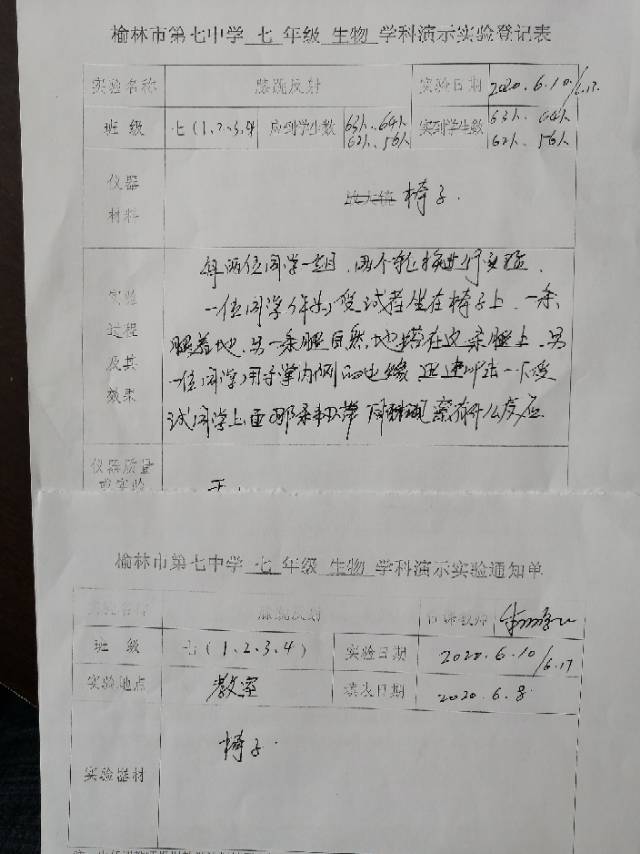 榆林市第七中学 七 年级 生物 学科演示实验登记表
实验名称 膝跳反射 实验日期 2020.6.10/6.17.
班 级 七(1.2.3.4 应到学生数 63人、64人 62人、56人 实到学生数 63人、64人 62人、56人
仪器
材料 放大镜 椅子.
每两位同学一组,两个轮换进行实验.
实验 一位同学作为受试者坐在椅子上,一条
过程 腿着地,另一条腿自然地搭在这条腿上.另
及其 一位同学用手掌内侧的边缘,迅速叩击一下受
效果 试同学上面那条韧带 同时观察有什么反应.
仪器质量
或实验 无.
榆林市第七中学 七 年级 生物 学科演示实验通知单
实验名称 膝跳反射 任课教师
班 级 七(1.2.3.4) 实验日期 2020.6.10/6.17
实验地点 教室 填表日期 2020.6.8.
实验器材 椅子.